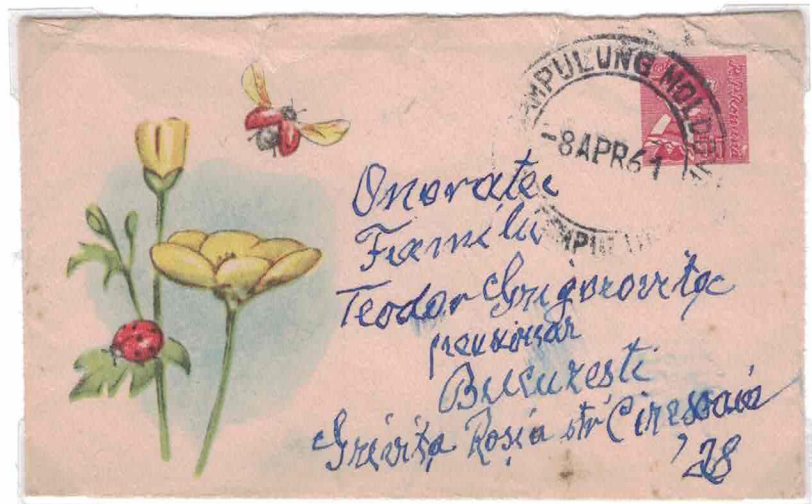 CAMPULUNG MOLDOV
R.P.Romînă
-8APR61
Onoratei
Familii
Teodor Grigorovitza
pensionar
Bucuresti
Grivița Roșia str Cireșoaia
28